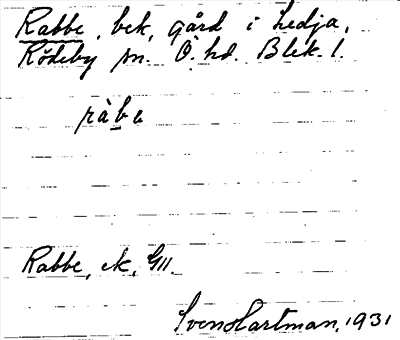 Rabbe, bek, gård i Ledja,
Rödeby sn. Ö. hd. Blek. l.
ràbe
Rabbe, ek, GIII.
Sven Hartman, 1931